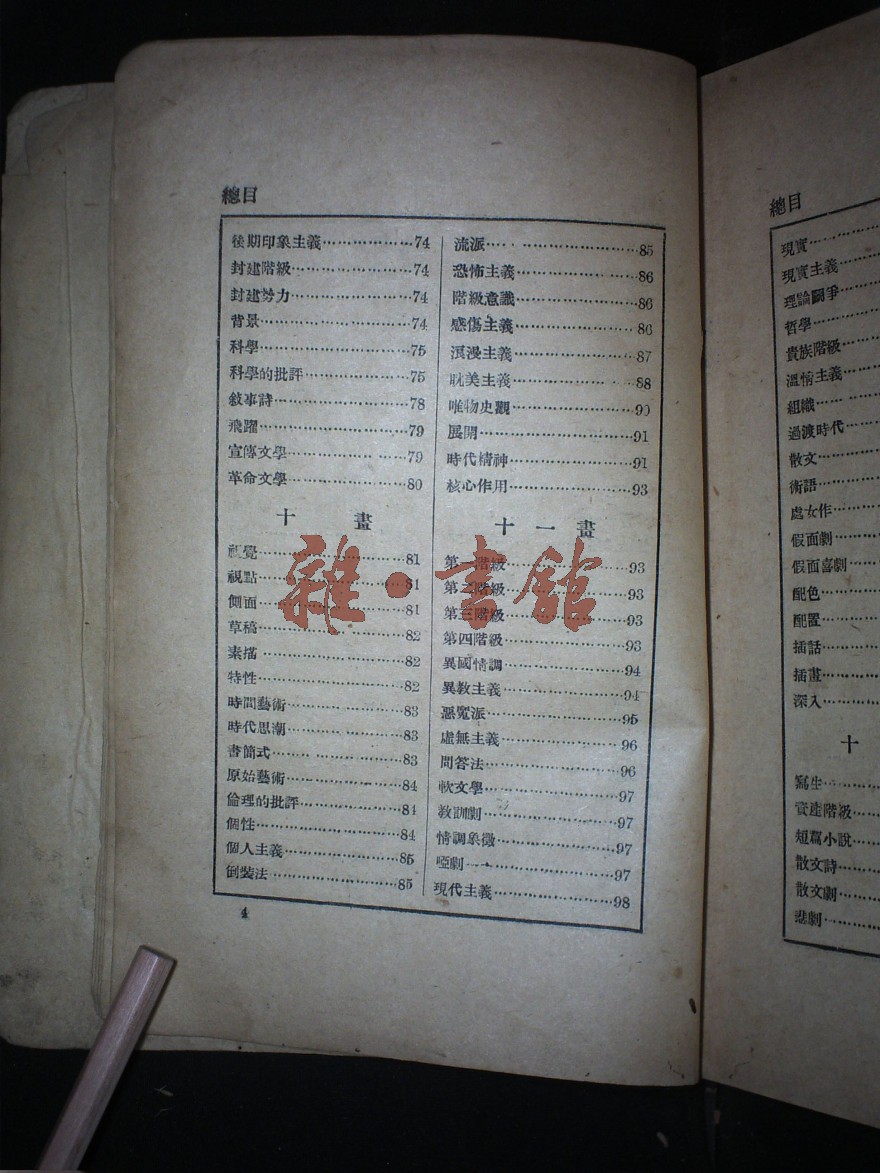 總目
後期印象主義………………74
封建階級………………74
封建勢力………………74
背景………………75
科學………………75
科學的批評………………75
敍事詩………………78
飛躍………………79
宣傳文學………………79
革命文學………………80
十畫
視覺………………81
視點………………81
側面………………81
草稿………………82
素描………………82
特性………………82
時間藝術………………83
時代思潮………………83
書簡式………………83
原始藝術………………84
倫理的批評………………84
個性………………84
個人主義………………85
倒裝法………………85
流派………………85
恐怖主義………………86
階級意識………………86
感傷主義………………86
浪漫主義………………87
耽美主義………………88
唯物史觀………………90
展開………………91
時代精神………………91
核心作用………………93
十一畫
第一階級………………93
第二階級………………93
第三階級………………93
第四階級………………93
異國情調………………94
異教主義………………94
惡魔派………………95
虛無主義………………96
問答法………………96
軟文學………………97
教訓劇………………97
情調象徵………………97
啞劇………………97
現代主義………………98
4
雜·書館
總目
現實
現實主義
理論鬪爭
哲學
貴族階級
溫情主義
組織
過渡時代
散文
術語
處女作
假面劇
假面喜劇
配色
配置
插話
插畫
深入
十
寫生
資產階級
短篇小說
散文詩
散文劇
悲劇